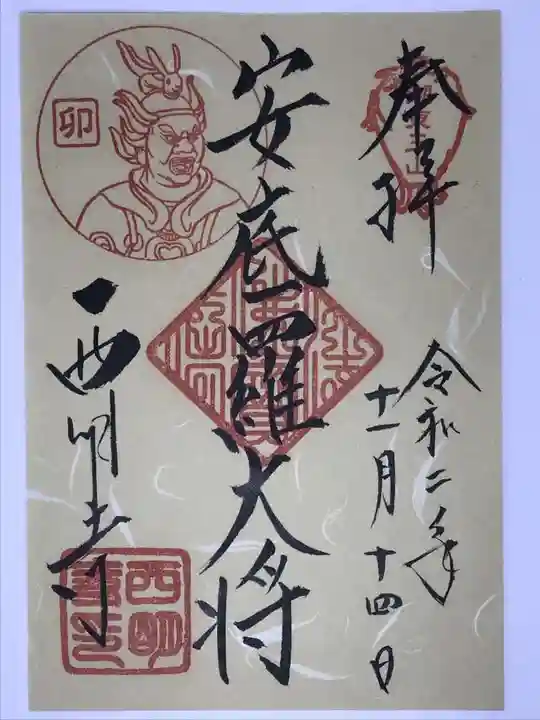 奉拝
令和二年
十一月十四日
安底羅大将
卯
西明寺
西明